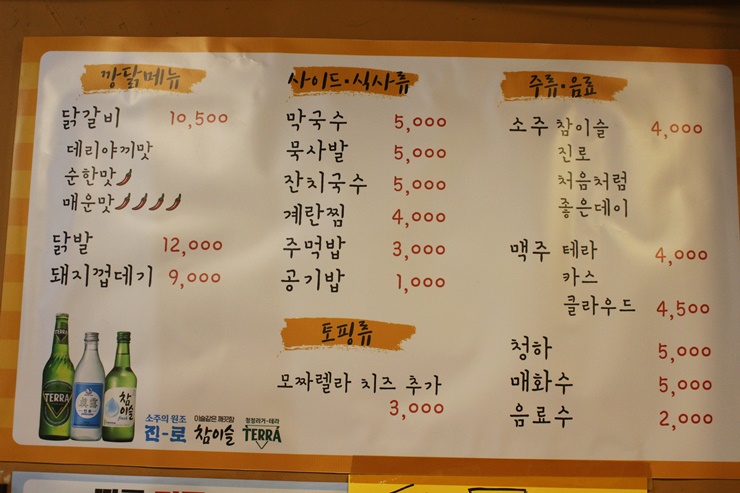 깡닭메뉴
닭갈비 10,500
데리야끼맛
순한맛
매운맛
닭발 12,000
돼지껍데기 9,000
사이드·식사류
막국수 5,000
묵사발 5,000
잔치국수 5,000
계란찜 4,000
주먹밥 3,000
공기밥 1,000
토핑류
모짜렐라 치즈 추가
3,000
주류·음료
소주 참이슬 4,000
진로
처음처럼
좋은데이
맥주 테라 4,000
카스
클라우드 4,500
청하 5,000
매화수 5,000
음료수 2,000
TERRA
TERRA
진로
참이슬
소주의 원조
진-로
이슬같은 깨끗함
참이슬
청정라거-테라
TERRA